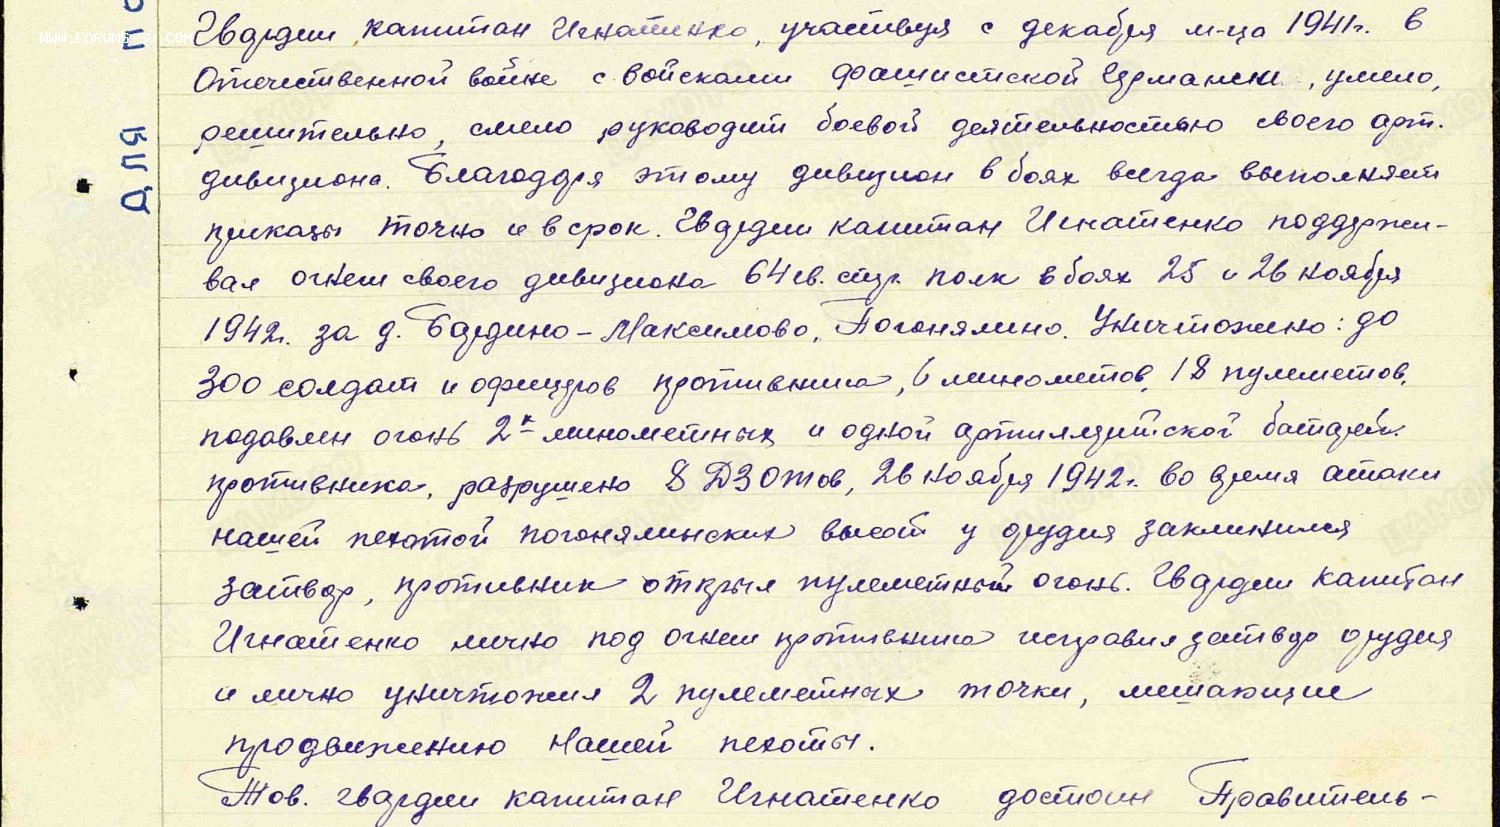 WWW.FORUMSSSU.COM
для по
Гвардии капитан Игнатенко, участвуя с декабря м-ца 1941г. в
Отечественной войне с войсками фашистской Германии, умело,
решительно, смело руководит боевой деятельностью своего арт.
дивизиона. Благодаря этому дивизион в боях всегда выполняет
приказы точно и в срок. Гвардии капитан Игнатенко поддержи-
вал огнем своего дивизиона 64 гв. стр. полк в боях 25 и 26 ноября
1942г. за д. Бардино-Максимово, Погонялино. Уничтожено: до
300 солдат и офицеров противника, 6 минометов, 18 пулеметов,
подавлен огонь 2х минометных и одной артиллерийской батарей
противника, разрушено 8 ДЗОТов, 26 ноября 1942г. во время атаки
нашей пехотой погонялинских высот у орудия заклинился
затвор, противник открыл пулеметный огонь. Гвардии капитан
Игнатенко лично под огнем противника исправил затвор орудия
и лично уничтожил 2 пулеметных точки, мешающие
продвижению нашей пехоты.
Тов. гвардии капитан Игнатенко достоин Правитель-